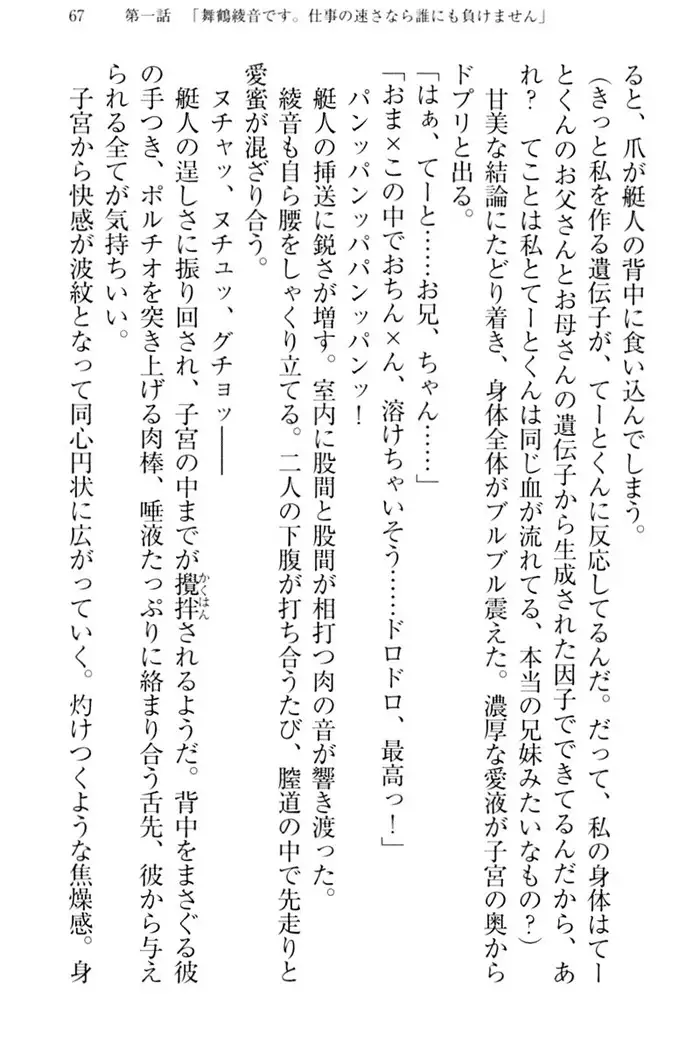 67　第一話　「舞鶴綾音です。仕事の速さなら誰にも負けません」
ると、爪が艇人の背中に食い込んでしまう。
（きっと私を作る遺伝子が、てーとくんに反応してるんだ。だって、私の身体はてー
とくんのお父さんとお母さんの遺伝子から生成された因子でできてるんだから、あ
れ？　てことは私とてーとくんは同じ血が流れてる、本当の兄妹みたいなもの？）
甘美な結論にたどり着き、身体全体がブルブル震えた。濃厚な愛液が子宮の奥から
ドプリと出る。
「はぁ、てーと……お兄、ちゃん……」
「おま×この中でおちん×ん、溶けちゃいそう……ドロドロ、最高っ！」
パンッパンッパパンッパンッ！
艇人の挿送に鋭さが増す。室内に股間と股間が相打つ肉の音が響き渡った。
綾音も自ら腰をしゃくり立てる。二人の下腹が打ち合うたび、膣道の中で先走りと
愛蜜が混ざり合う。
ヌチャッ、ヌチュッ、グチョッ――
艇人の逞しさに振り回され、子宮の中までが攪拌かくはんされるようだ。背中をまさぐる彼
の手つき、ポルチオを突き上げる肉棒、唾液たっぷりに絡まり合う舌先、彼から与え
られる全てが気持ちいい。
子宮から快感が波紋となって同心円状に広がっていく。灼けつくような焦燥感。身